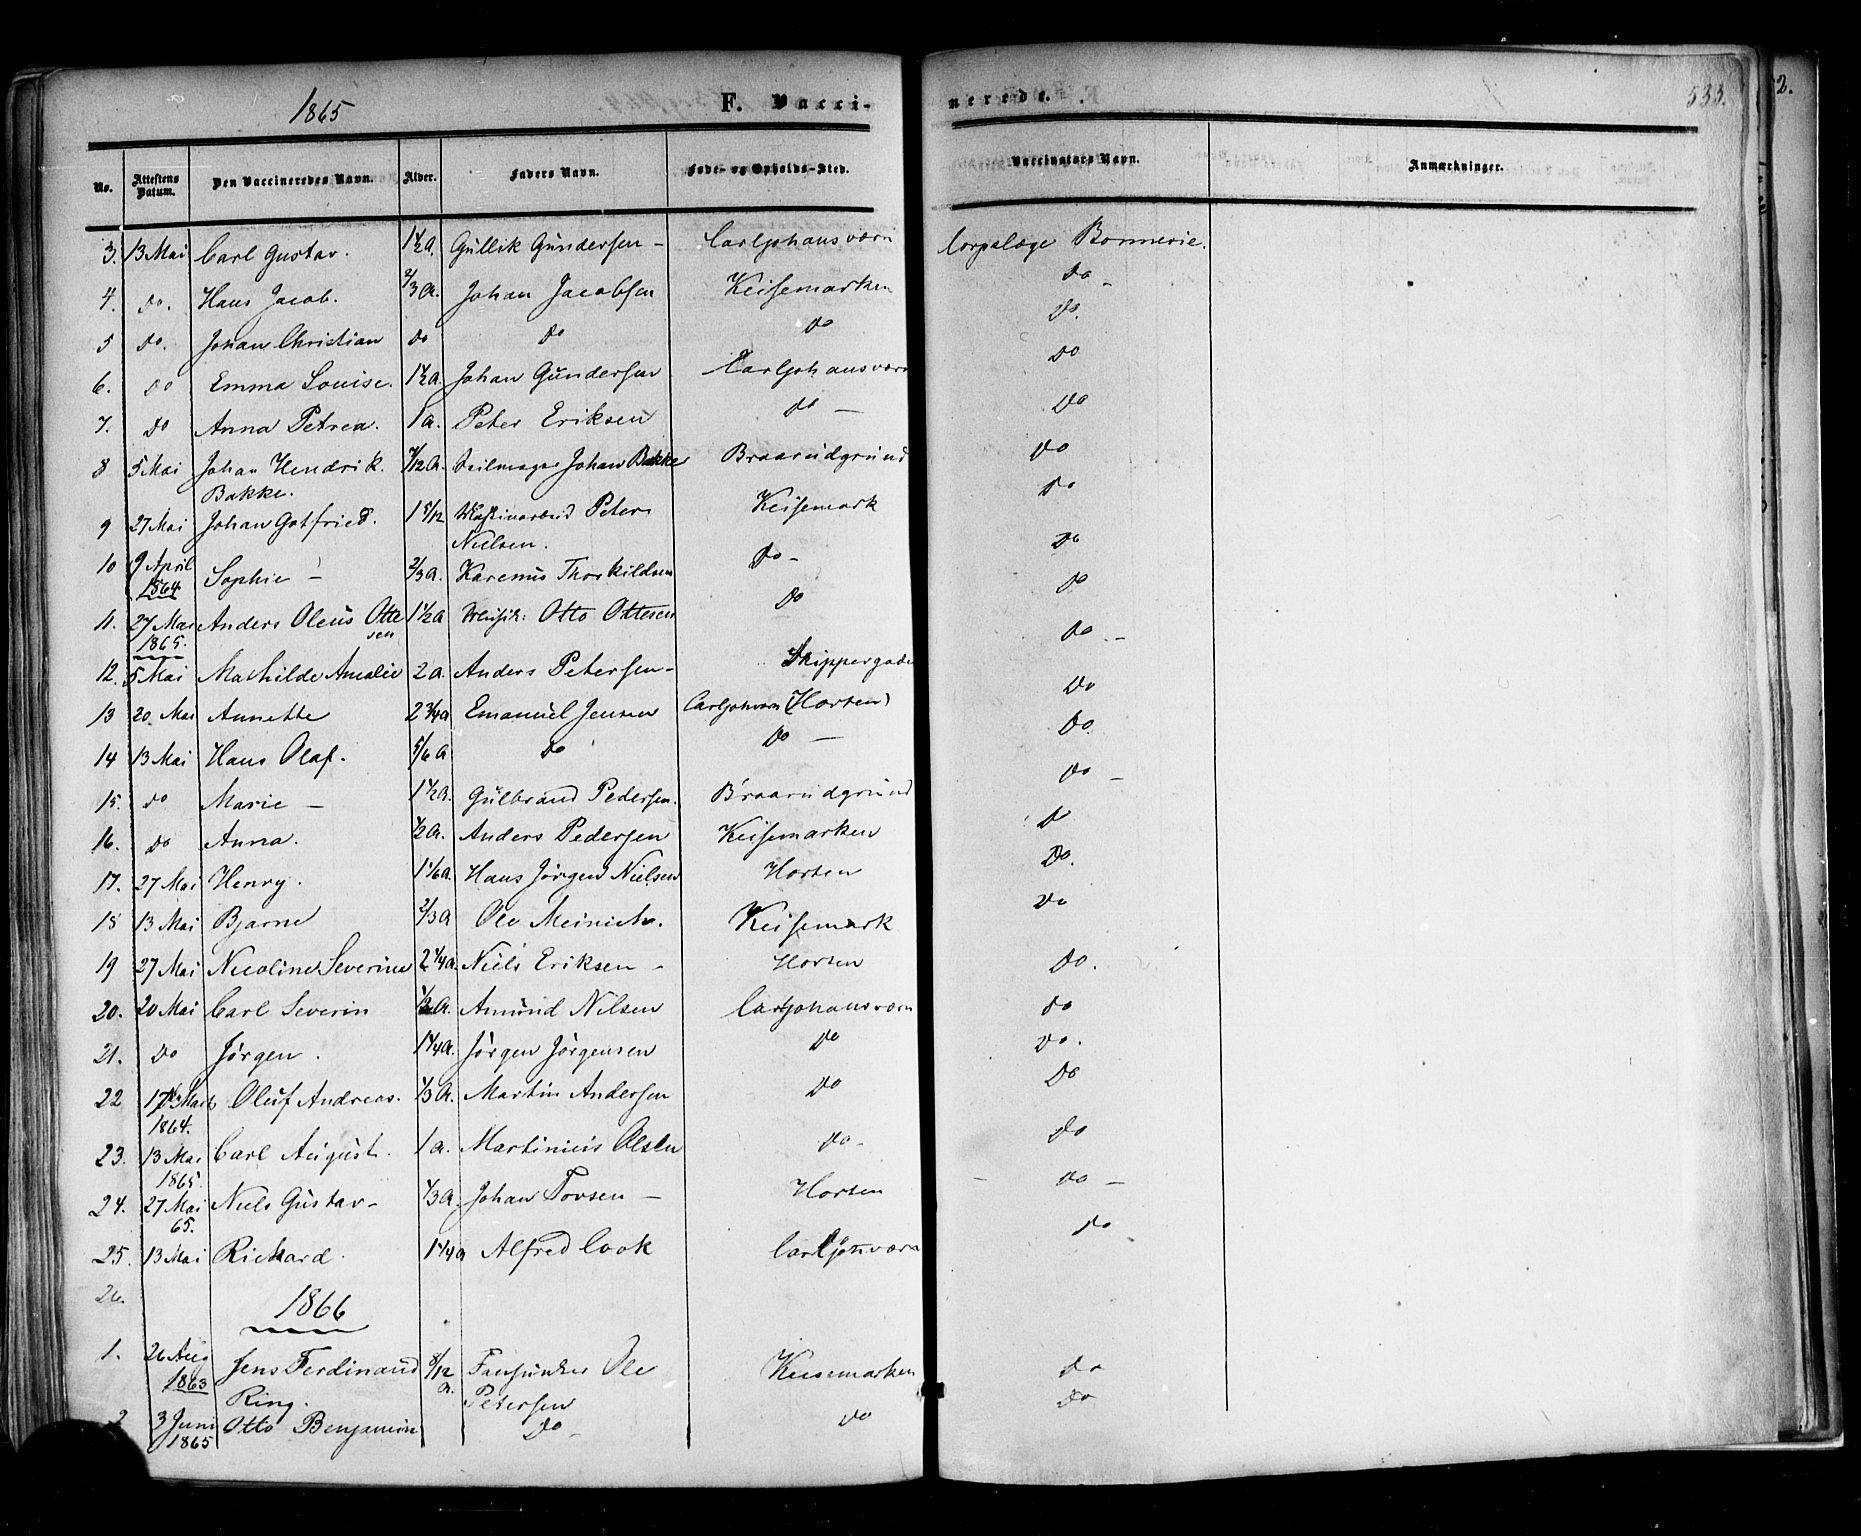 1865 F. Vacci- nerede. 533. 2.
No. Attestens Datum. Den Vaccineredes Navn. Alder. Faders Navn. Føde- og Opholds-Sted. Vaccinators Navn. Anmærkninger.
3. 13 Mai Carl Gustav. 1 1/2 a. Gullik Gundersen - Carljohansværn Corpslæge Bonnevie.
4. Do. Hans Jacob. 2/3 a. Johan Jacobsen Keisemarken Do -
5 Do. Johan Christian Do Do Do Do.
6. Do Emma Louise. 1 1/2 a. Johan Gundersen Carljohansværn Do
7. Do Anna Petrea. 1 a. Peter Eriksen Do - Do
8 5 Mai Johan Hendrik 7/12 a. Seilmager Johan Bakke Braarudgrund Do
Bakke.
9 27 Mai Johan Gotfried. 1 5/12 Peter Keisemark Do
Nielsen.
10 9 April Sophie - 2/3 a. Karenus Thorkildsen Do - Do
1864.
11. 27 Mai Anders Oleus Otte 1 1/2 a Musik: Otto Ottesen Do Do
1865. sen
12. 5 Mai Mathilde Amalie 2 a. Anders Petersen - Skippergade Do -
13 20. Mai Annette 2 3/4 a Emanuel Jensen Carljohværn (Horten) Do
14 13 Mai Hans Olaf. 5/6 a Do Do - Do.
15. Do Marie - 1 1/2 a. Gulbrand Pedersen. Braarudgrund Do -
16. Do Anna. 1/2 a. Anders Pedersen Keisemarken Do
17. 27 Mai Henry. 1 1/6 a. Hans Jørgen Nielsen Horten Do.
18 13 Mai Bjarne 2/3 a Ole Meinich. Keisemark Do
19 27 Mai Nicoline Severine 2 1/4 a. Niels Eriksen - Horten Do.
20. 20 Mai Carl Severin a. Amund Nilsen Carljohansværn Do
21. Do Jørgen. 1 1/4 a. Jørgen Jørgensen Do Do.
22 17 Marts Oluf Andreas. 1/3 a. Martin Andersen Do Do
1864.
23. 13 Mai Carl August. 1 a. Martinius Olsen Do - Do
1865.
24. 27 Mai Niels Gustav - 1/3 a. Johan Tovsen - Horten Do -
65.
25. 13 Mai Richard. 1 1/4 a Alfred Cook Carljohnværn Do
26.
1866
1. 26 Aug Jens Ferdinand 8/12 Fanjunker Ole Keisemarken Do
1863 Ring. a. Petersen
2 3 Juni Otto Benjamin Do - Do Do
1865